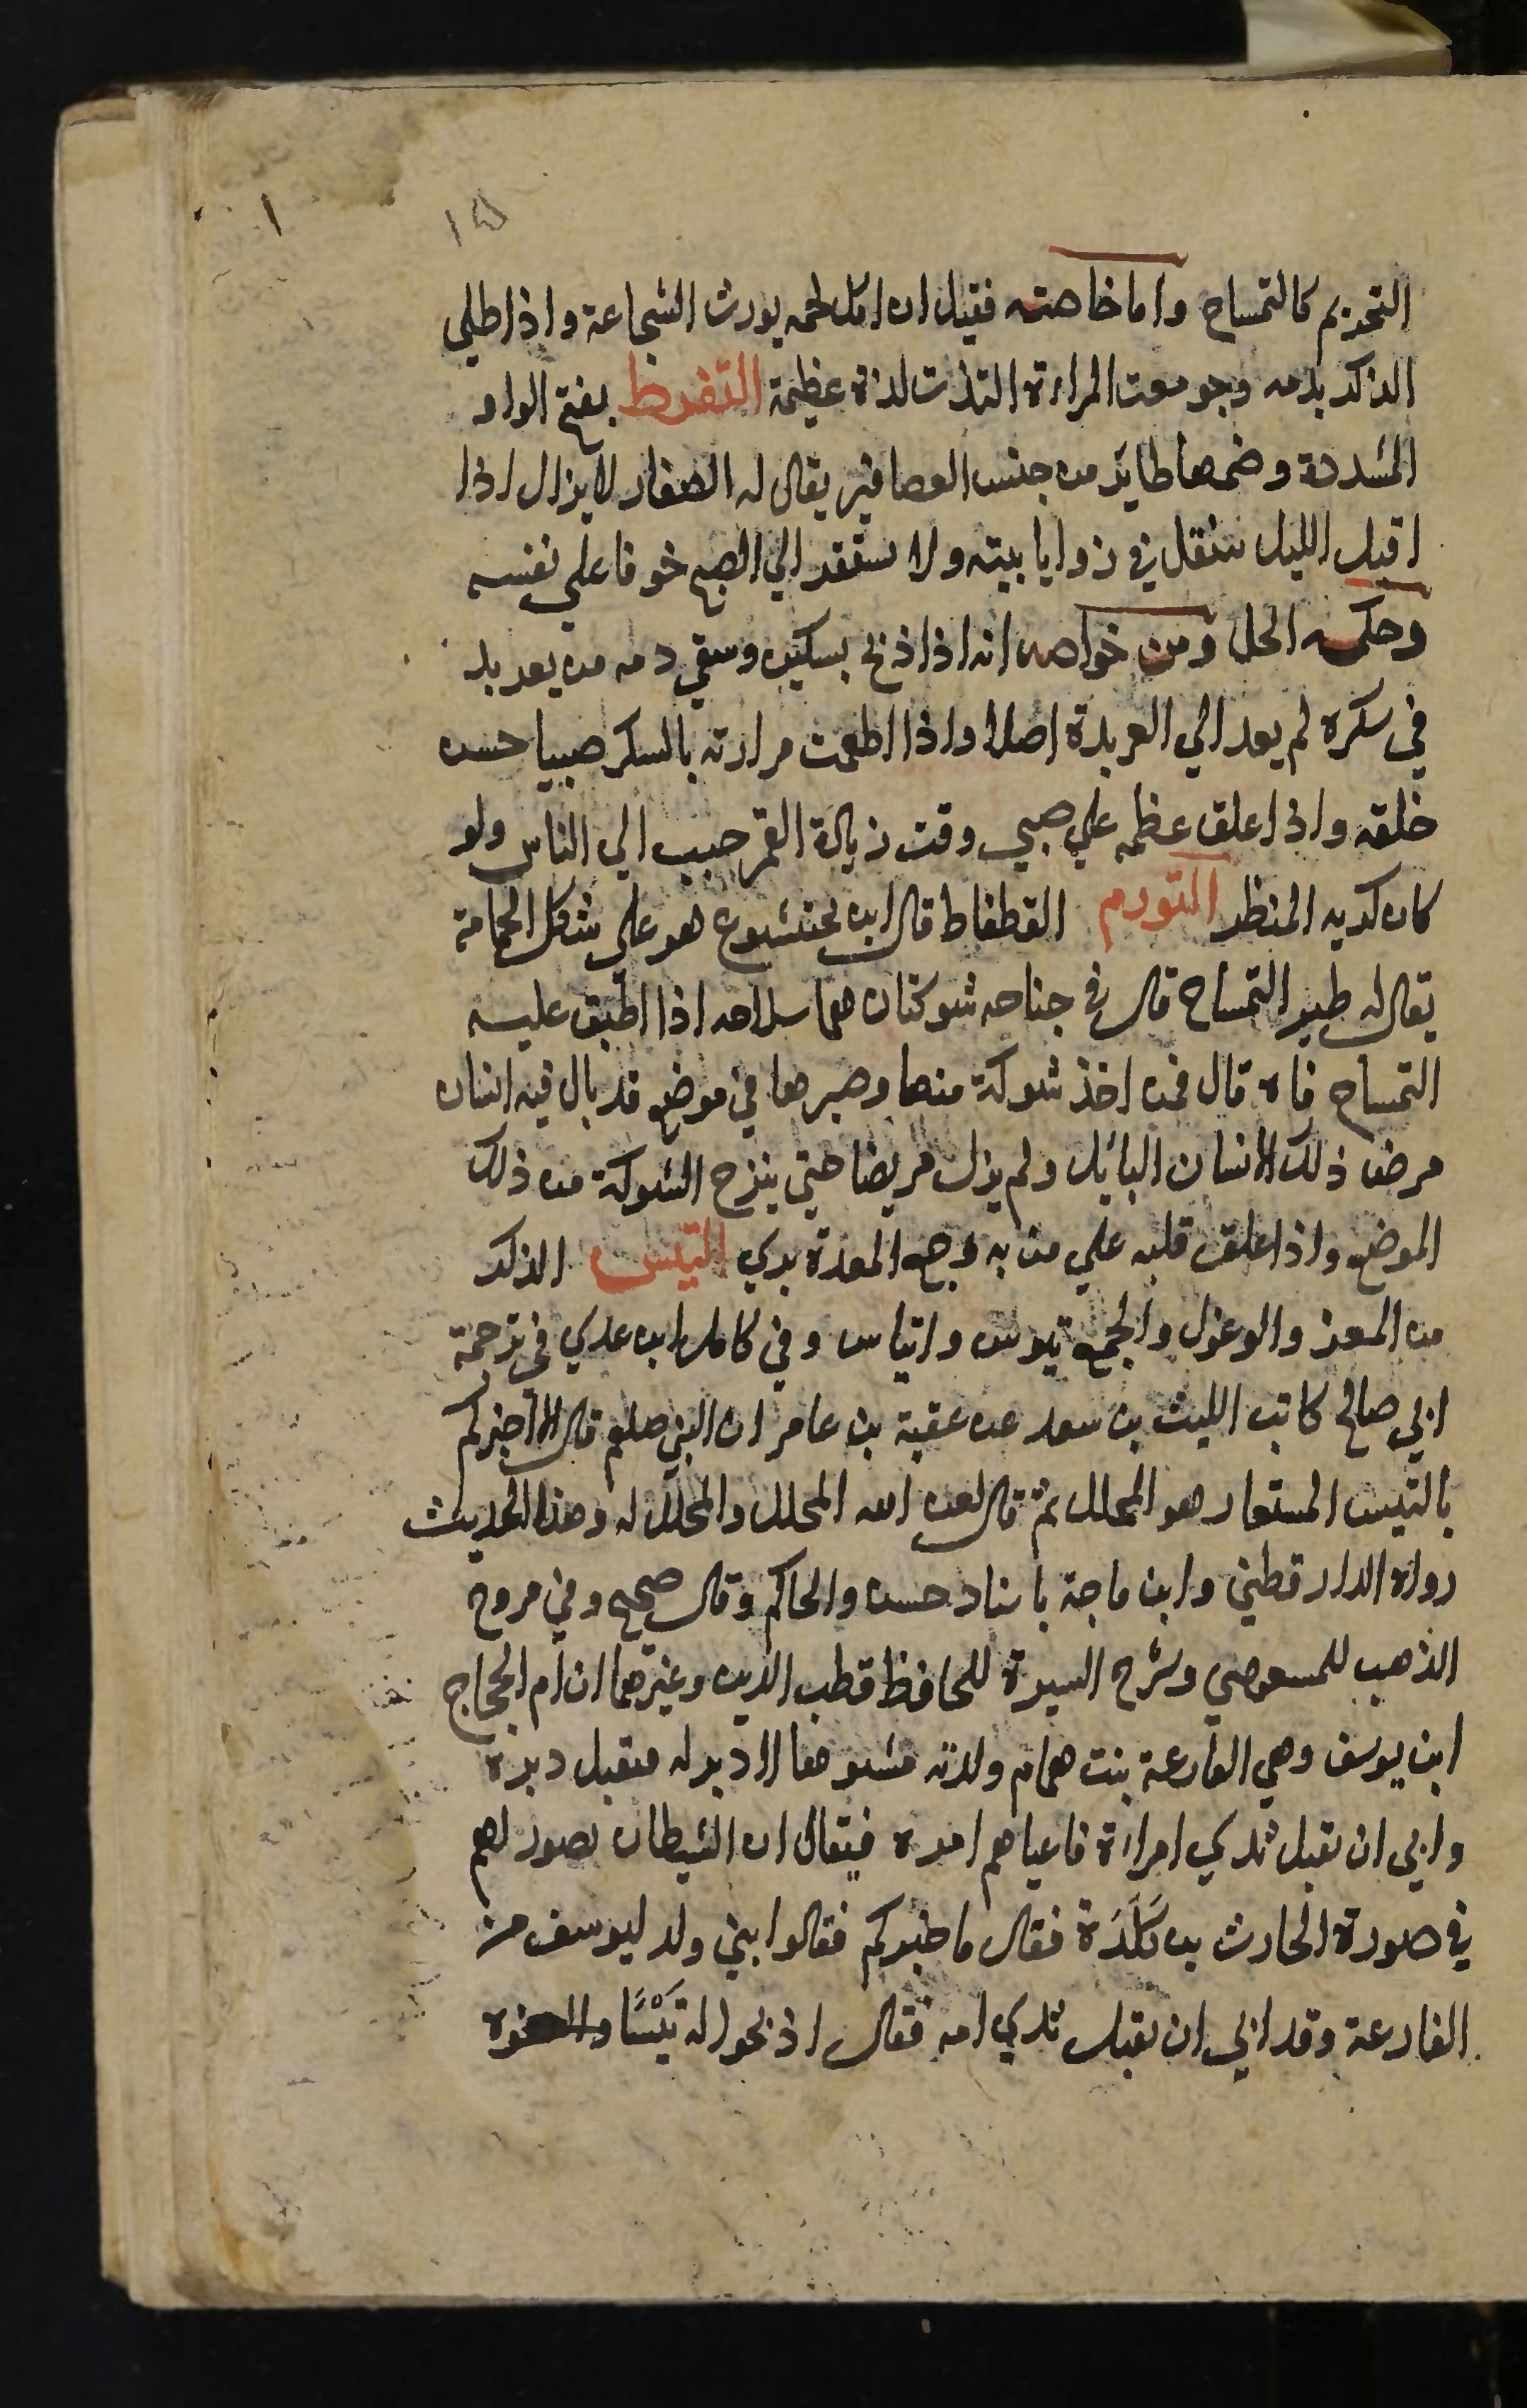 ١٥
١
التحريم كالتمساح واما خاصته فقيل ان اكل لحمه يورث الشجاعة واذا طلي
الذكر بدمه وجومعت المراءة التذت لذة عظيمة التفوط بفتح الواو
المشددة وضمها طاير من جنس العصافير يقال له الصفار لا يزال اذا
اقبل الليل يتنقل في زوايا بيته ولا يستقر الي الصبح خوفا علي نفسه
وحكمه الحل ومن خواصه انه اذا ذبح بسكين وسقي دمه من يعربد
في سكره لم يعد الي العربدة اصلا واذا اطعمت مرارته بالسكر صبيا حسن
خلقه واذا علق عظمه علي صبي وقت زيادة القمر حبب الي الناس ولو
كان كريه المنظر التورم القطقاط قال ابن بختشوع هو علي شكل الحمامة
يقال له طير التمساح قال في جناحه شوكتان هما سلاحه اذا اطبق عليه
التمساح فاه قال فمن اخذ شوكة منها وصيرها في موضع قد بال فيه انسان
مرض ذلك الانسان البائل ولم يزل مريضا حتي ينزح الشوكة من ذلك
الموضع واذا علق قلبه علي من به وجع المعدة بري التيس الذكر
من المعز والوعول والجمع تيوس واتياس وفي كامل ابن عدي في ترجمة
ابي صالح كاتب الليث بن سعد عن عقبة بن عامر ان النبي صلعم قال الا اخبركم
بالتيس المستعار هو المحلل ثم قال لعن الله المحلل والمحلل له وهذا الحديث
رواه الدارقطني وابن ماجة باسناد حسن والحاكم وقال صحيح وفي مروج
الذهب للمسعودي وشرح السيرة للحافظ قطب الدين وغيرهما ان ام الحجاج
ابن يوسف وهي الفارعة بنت همام ولدته مشوها لا دبر له فنقبل دبره
وابي ان يقبل ثدي امراءة فاعياهم امره فيقال ان الشيطان تصور لهم
في صورة الحارث بن كَلَدَة فقال ما خبركم فقالوا بني ولد ليوسف من
الفارعة وقد ابي ان يقبل ثدي امه فقال اذبحوا له تَيْسًا